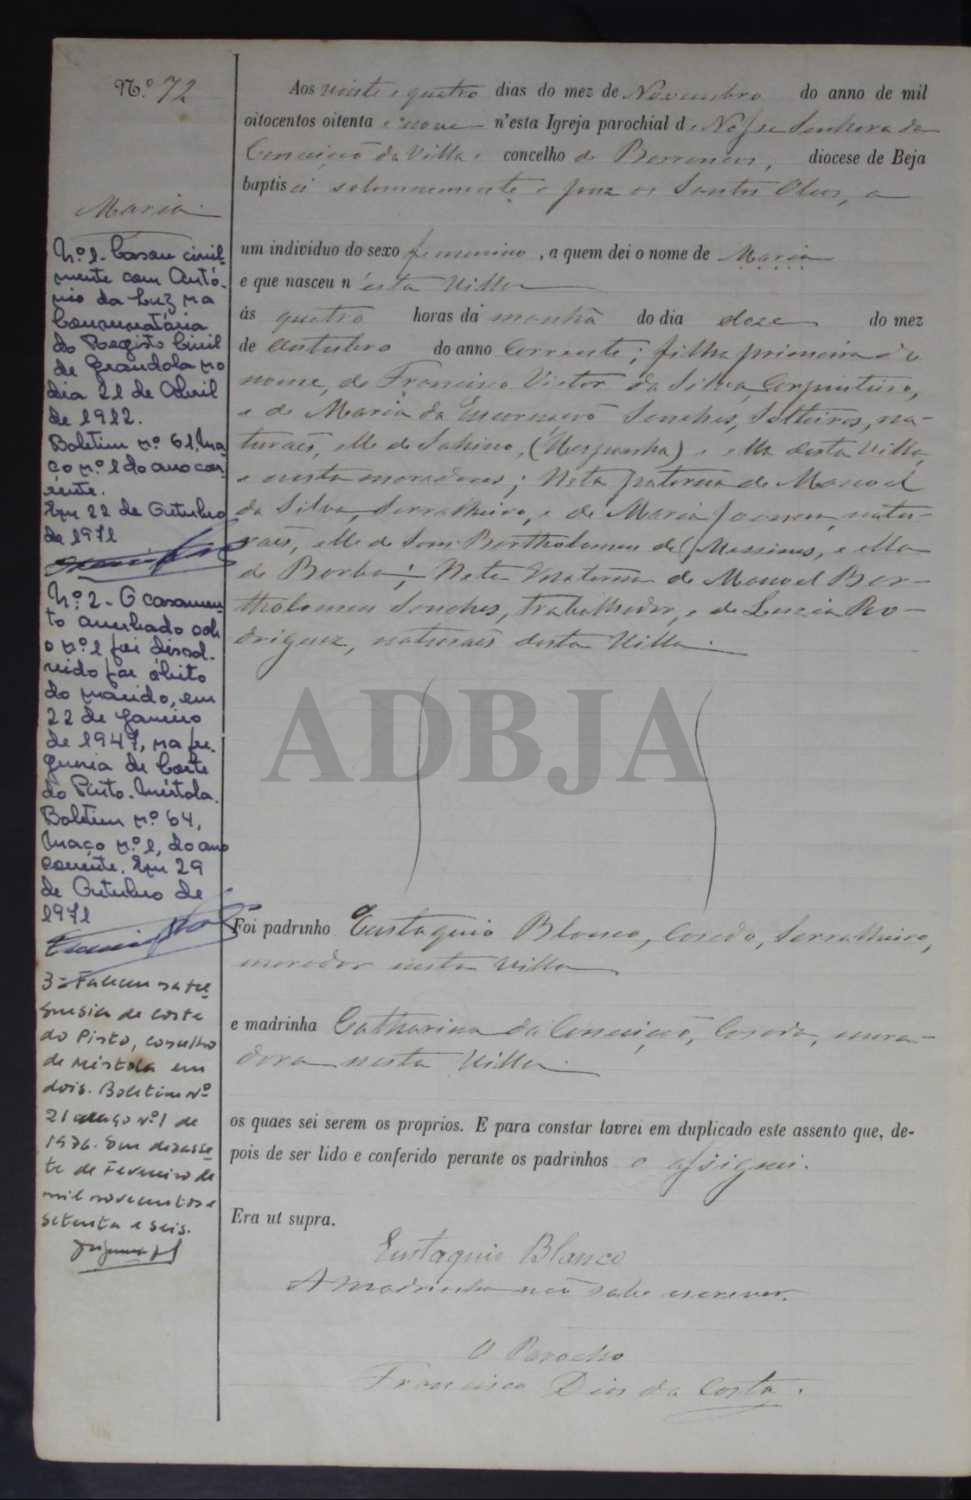 N.º 72
Maria
Nº 1. Casou civil-
mente com Antó-
nio da Luz na
Conservatória
do Registo Civil
de Grandola no
dia 21 de Abril
de 1912.
Boletim nº 61, ma-
ço nº 1 do ano cor-
rente.
Em 22 de Outubro
de 1971
Nº 2 - O casamen-
to averbado sob
o nº 1 foi dissol-
vido por óbito
do marido, em
22 de Janeiro
de 1947, na fre-
guesia de Corte
do Pinto. Mértola.
Boletim nº 64,
maço nº 1, do ano
corrente. Em 29
de Outubro de
1971
3 = Faleceu na fre-
guesia de Corte
do Pinto, concelho
de Mértola em
dois. Boletim nº
21 maço nº 1 de
1976. Em dezasse-
te de Fevereiro de
mil novecentos e
setenta e seis.
Aos vinte e quatro dias do mez de Novembro do anno de mil
oitocentos oitenta e nove n'esta Igreja parochial de Nossa Senhora da
Conceição da Villa e concelho de Barrancos, diocese de Beja
baptisei solemnemente e puz os Santos Oleos, a
um individuo do sexo femenino, a quem dei o nome de Maria
e que nasceu n'esta Villa
ás quatro horas da manhã do dia doze do mez
de Outubro do anno corrente; filha primeira d'o
nome, de Francisco Victor da Silva, Carpinteiro,
e de Maria da Encarnação Sanches, Solteiros, na-
turaes, elle de (Hespanha) e ella desta Villa,
e nesta moradores; Neta paterna de Manoel
da Silva, Serralheiro, e de Maria Joanna, natu-
raes, elle de Sam Bartholomeu de Messines, e ella
de Borba; Neta Materna de Manoel Bar-
tholomeu Sanches, trabalhador, e de Luzia Ro-
driguez, naturaes desta Villa.
ADBJA
Foi padrinho Eustaquio Blanco, Casado, Serralheiro,
morador nesta Villa
e madrinha Catharina da Conceição, Casada, mora-
dora nesta Villa.
os quaes sei serem os proprios. E para constar lavrei em duplicado este assento que, de-
pois de ser lido e conferido perante os padrinhos o assignei.
Era ut supra.
Eustaquio Blanco
A madrinha não sabe escrever.
O Parocho
Francisco Dias da Costa.